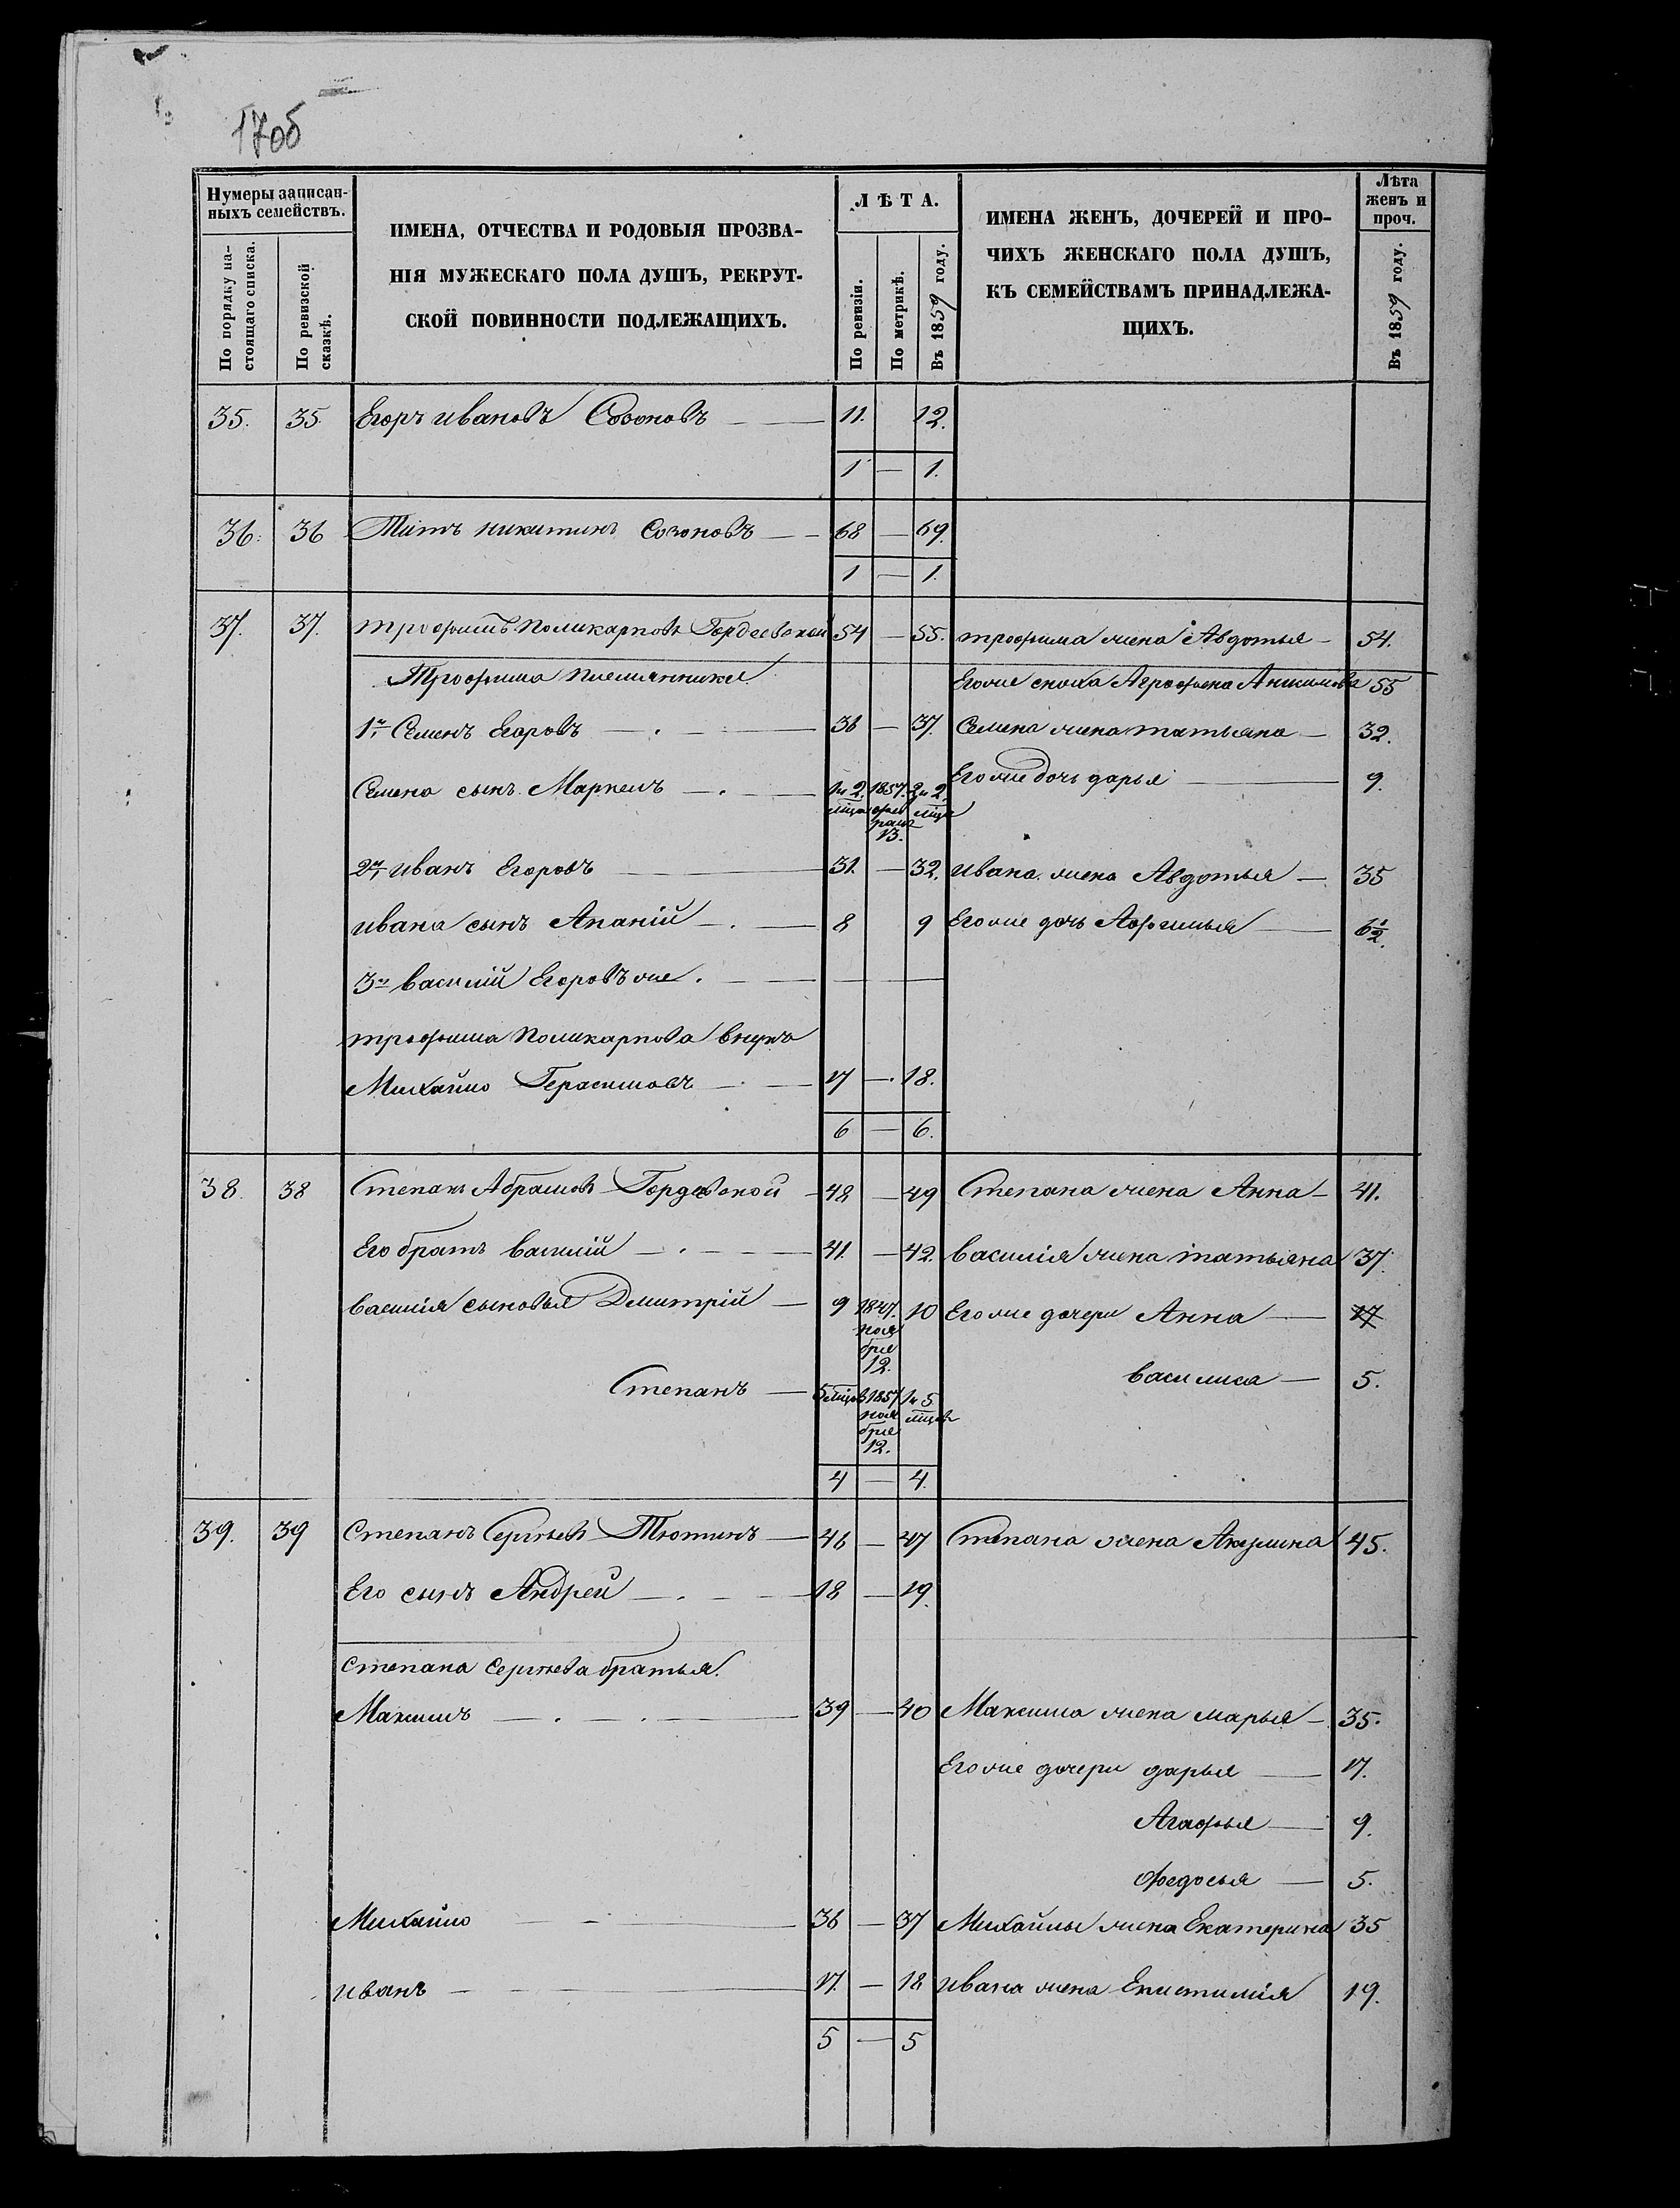 170б
Нумеры записан-
ныхъ семействъ.
По порядку на-
стоящаго списка.
По ревизской
сказкѣ.
ИМЕНА, ОТЧЕСТВА И РОДОВЫЯ ПРОЗВА-
НІЯ МУЖЕСКАГО ПОЛА ДУШЪ, РЕКРУТ-
СКОЙ ПОВИННОСТИ ПОДЛЕЖАЩИХЪ.
ЛѢТА.
По ревизіи.
По метрикѣ.
Въ 1859 году.
ИМЕНА ЖЕНЪ, ДОЧЕРЕЙ И ПРО-
ЧИХЪ ЖЕНСКАГО ПОЛА ДУШЪ,
КЪ СЕМЕЙСТВАМЪ ПРИНАДЛЕЖА-
ЩИХЪ.
Лѣта
женъ и
проч.
Въ 1859 году.
35. 35. Егоръ Ивановъ Созоновъ — 11. 12.
1 — 1.
36. 36 Титъ Никитинъ Созоновъ — 68 — 69.
1 — 1.
37. 37. Трофимъ Поликарповъ Гордеевской 54 — 55. Трофима жена Авдотья — 54.
Трофима племянники Его же сноха Аграфена Анисимова 55
1й Семенъ Егоровъ — 36 — 37. Семена жена татьяна — 32.
Семена сынъ Маркелъ — 1 и 2 мѣца 1857. февраля 13. 2 и 2 мѣца Его же дочь дарья — 9.
2й Иванъ Егоровъ — 31. — 32. Ивана жена Авдотья — 35
Ивана сынъ Ананій — 8 9 Его же дочь Афимья — 6 1/2.
3й василій Егоровъ же. —
трофима Поликарпова внукъ
Михайло Герасимовъ — 17 — 18.
6 — 6.
38. 38 Степанъ Абрамовъ Гордѣевской — 48 — 49 Степана жена Анна — 41.
Его братъ василій — 41. — 42. Василія жена татьяна 37.
василія сыновья Дмитрій — 9 1847. ноябрь 12. 10 Его же дочери Анна — 17
Степанъ — 5 мѣцов 1857 ноября 12. 1 и 5 мѣцовъ василиса — 5.
4 — 4.
39. 39 Степанъ Сергѣевъ Тютинъ — 46 — 47 Степана жена Акулина 45.
Его сынъ Андрей — 18 — 19.
Степана Сергѣева братья.
Максимъ — 39 — 40 Максима жена марья — 35.
Его же дочери дарья — 17.
Агафья — 9.
Федосья — 5.
Михайло — 36 — 37 Михайлы жена Екатерина 35
Иванъ — 17. — 18 Ивана жена Епистимія 19.
5 — 5